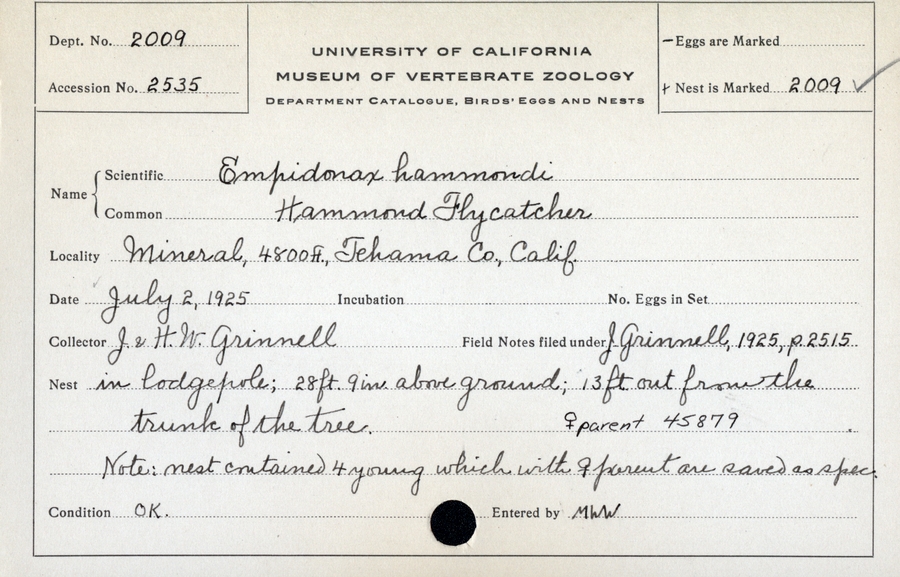 Dept. No. 2009
Accession No. 2535
UNIVERSITY OF CALIFORNIA
MUSEUM OF VERTEBRATE ZOOLOGY
DEPARTMENT CATALOGUE, BIRDS' EGGS AND NESTS
– Eggs are Marked
+ Nest is Marked 2009 ✓
Name { Scientific Empidonax hammondi
Common Hammond Flycatcher
Locality Mineral, 4800 ft., Tehama Co., Calif.
Date July 2, 1925 Incubation No. Eggs in Set
Collector J. & H. W. Grinnell Field Notes filed under J. Grinnell, 1925, p. 2515
Nest in lodgepole; 28 ft. 9 in. above ground; 13 ft out from the
trunk of the tree. ♀ parent 45879
Note: nest contained 4 young which with ♀ parent are saved as spec.
Condition OK. Entered by MWW